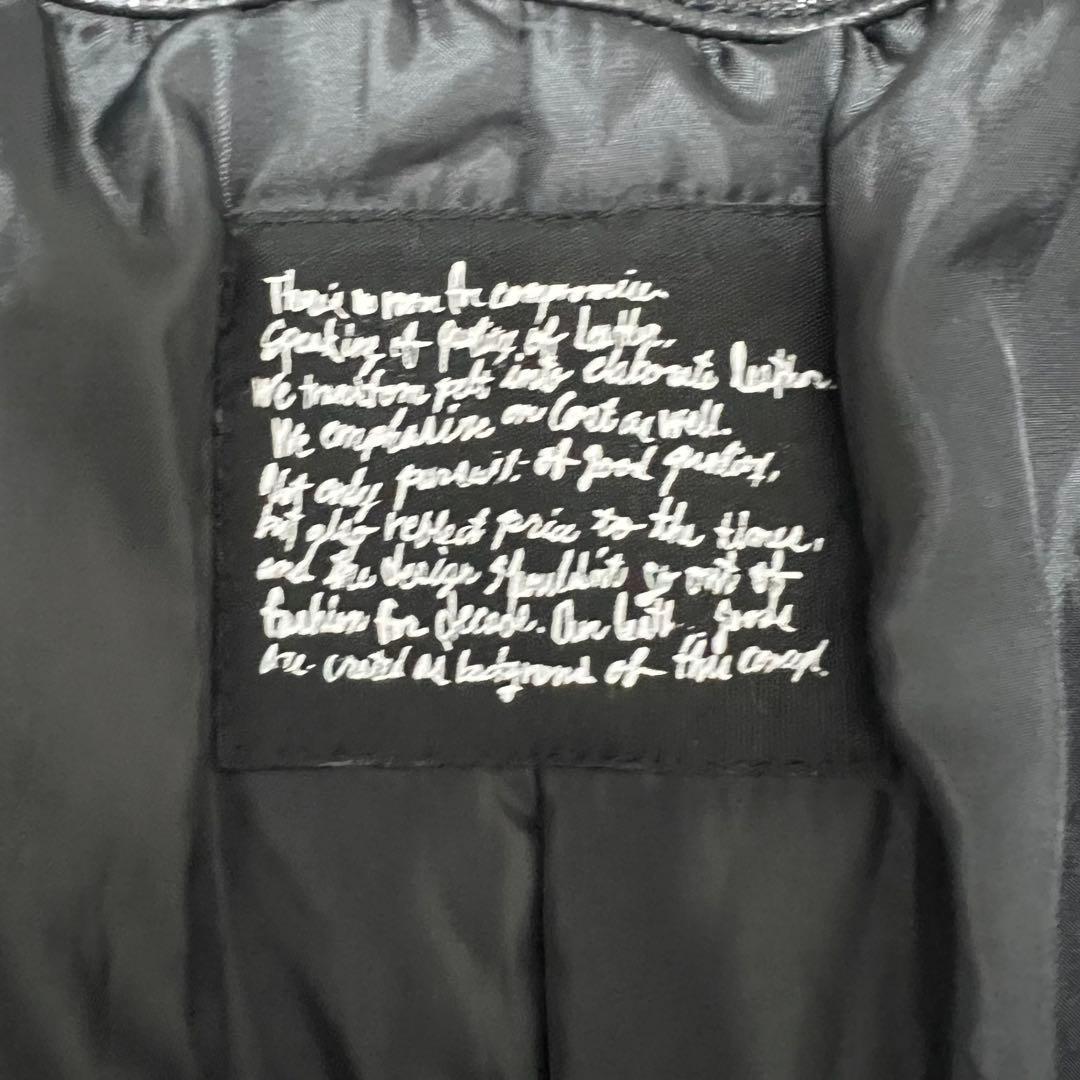 There is no room for compromise.
Speaking of quality of leather.
We transform pelt into elaborate leather.
We emphasize on Cost as well.
Not only pursuit of good quality,
but also reflect price to the
and the design shouldn't go out of
fashion for decade. Our leath.. goods
are created as background of this concept.